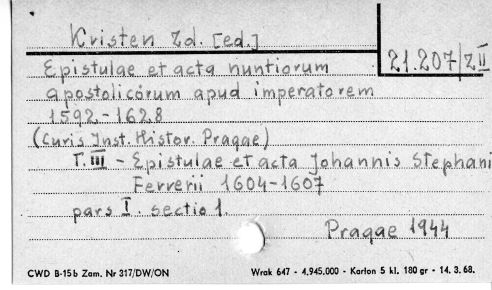 Kristen Zd. [ed.]
21.207/Z II
Epistulae et acta nuntiorum
apostolicórum apud imperatorem
1592-1628
(Curis Inst. Histor. Pragae)
T. III - Epistulae et acta Johannis Stephani
Ferrerii 1604-1607
pars I. sectio 1.
Pragae 1944
CWD B-15b Zam. Nr 317/DW/ON
Wrak 647 - 4,945.000 - Karton 5 kl. 180 gr - 14. 3. 68.